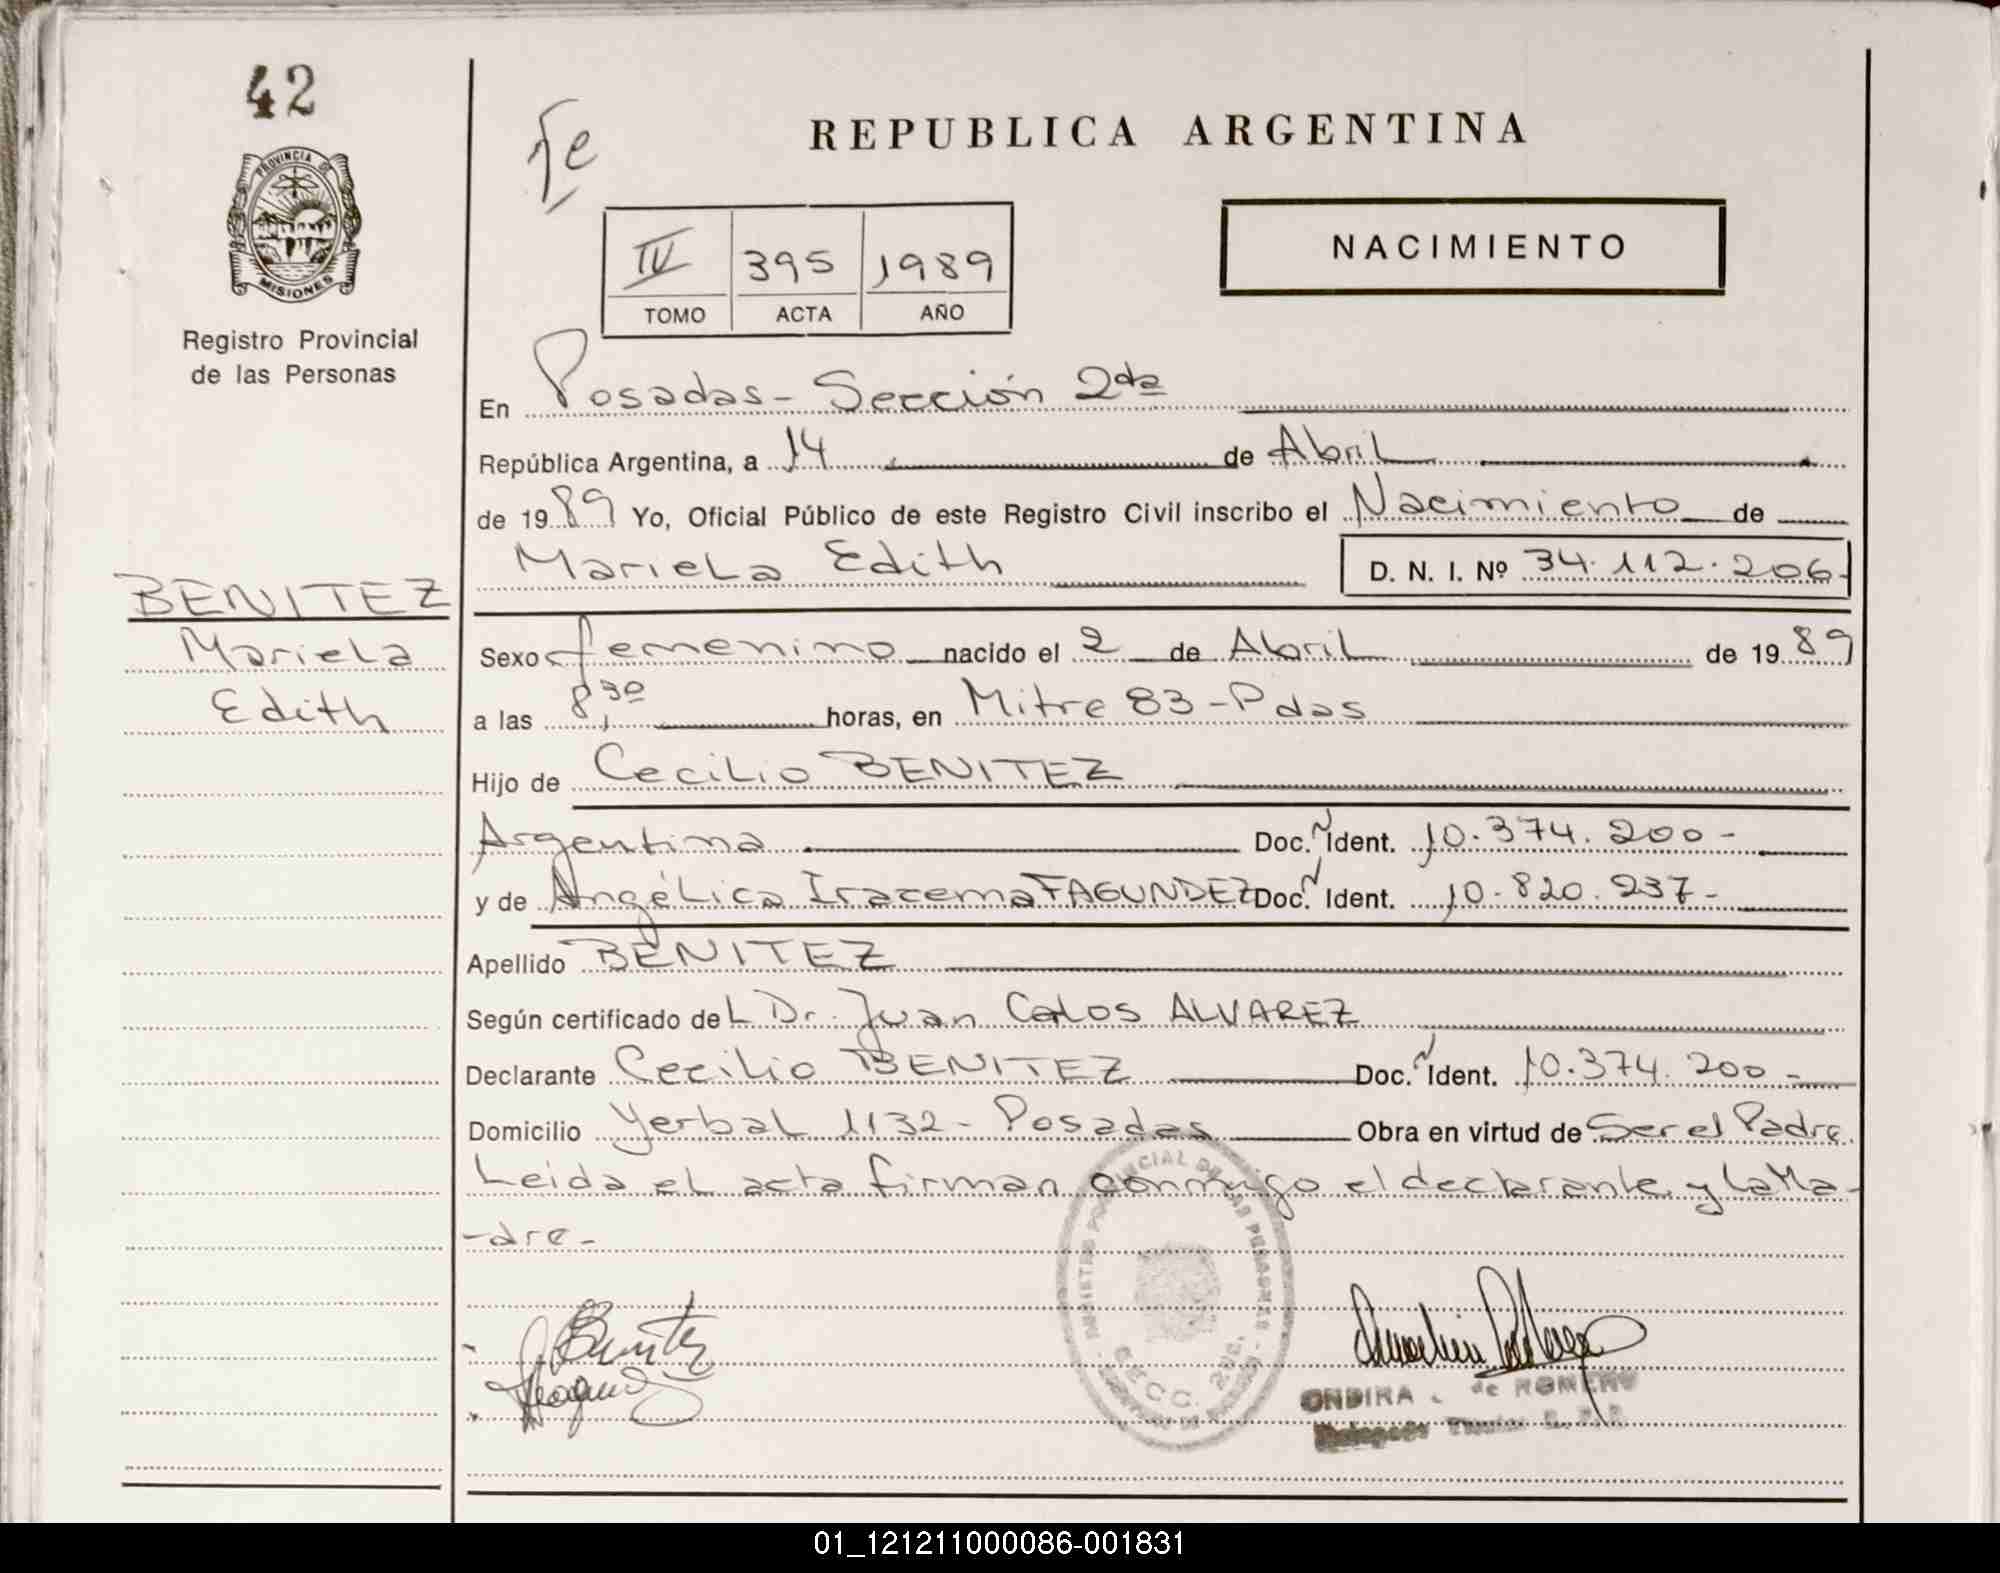 42
PROVINCIA DE
MISIONES
Registro Provincial
de las Personas
REPUBLICA ARGENTINA
IV 395 1989
TOMO ACTA AÑO
NACIMIENTO
En Posadas - Sección 2da
República Argentina, a 14 de Abril
de 1989 Yo, Oficial Público de este Registro Civil inscribo el Nacimiento de
Mariela Edith D. N. I. Nº 34.112.206-
BENITEZ
Mariela
Edith
Sexo femenino nacido el 2 de Abril de 1989
a las 8,30 horas, en Mitre 83 - Pdas
Hijo de Cecilio BENITEZ
Argentina Doc. N Ident. 10.374.200-
y de Angélica Iracema FAGUNDEZ Doc. N Ident. 10.820.237-
Apellido BENITEZ
Según certificado del Dr. Juan Calos ALVAREZ
Declarante Cecilio BENITEZ Doc. N Ident. 10.374.200-
Domicilio Yerbal 1132 - Posadas Obra en virtud de Ser el Padre
Leida el acta firman conmigo el declarante y la Ma-
-dre-
Benitez
SECC. 2da.
ONDIRA de ROMERO
Titular
01_121211000086-001831